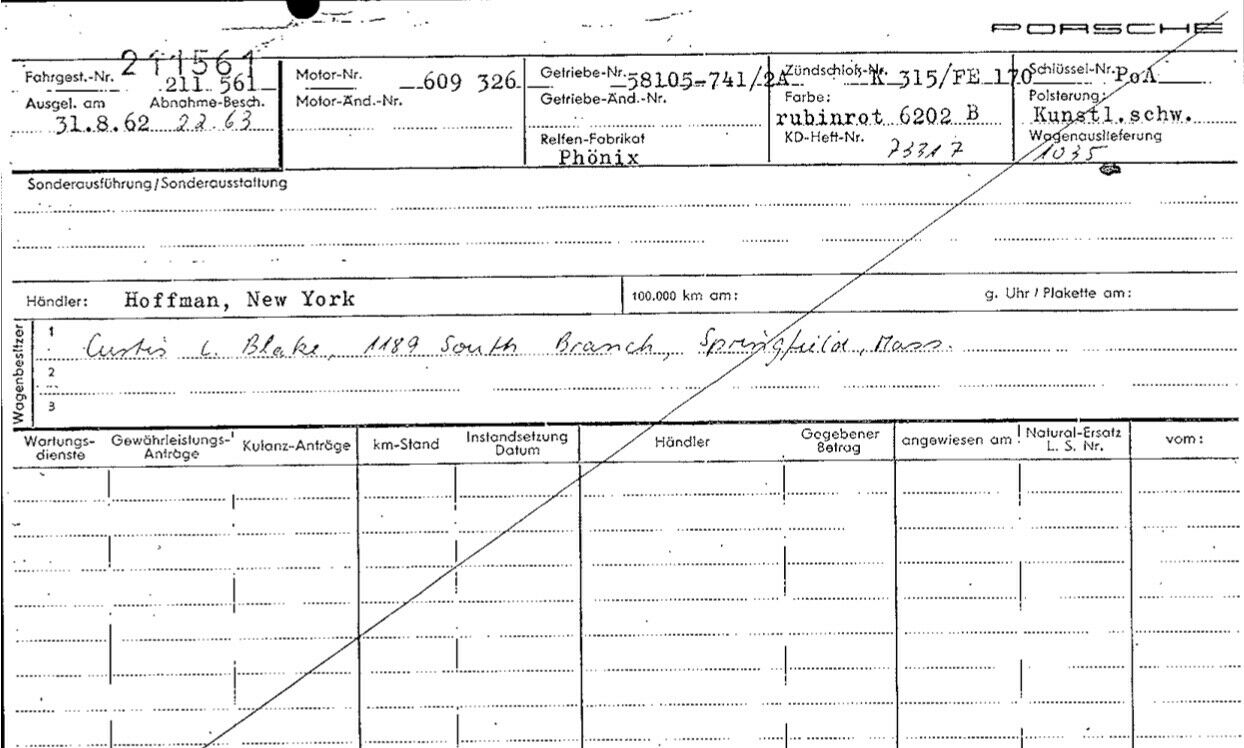 PORSCHE
211561
Fahrgest.-Nr. 211 561 Motor-Nr. 609 326 Getriebe-Nr. 58105-741/2A Zündschloß-Nr. K 315/FE 170 Schlüssel-Nr. PoA
Ausgel. am Abnahme-Besch. Motor-Änd.-Nr. Getriebe-Änd.-Nr. Farbe: Polsterung:
31.8.62 22.63 rubinrot 6202 B Kunstl.schw.
Reifen-Fabrikat KD-Heft-Nr. 73317 Wagenauslieferung
Phönix 1035
Sonderausführung/Sonderausstattung
Händler: Hoffman, New York 100.000 km am: g. Uhr / Plakette am:
Wagenbesitzer
1 Curtis L. Blake, 1189 South Branch, Springfield, Mass.
2
3
Wartungs- Gewährleistungs- Kulanz-Anträge km-Stand Instandsetzung Händler Gegebener angewiesen am Natural-Ersatz vom:
dienste Anträge Datum Betrag L. S. Nr.